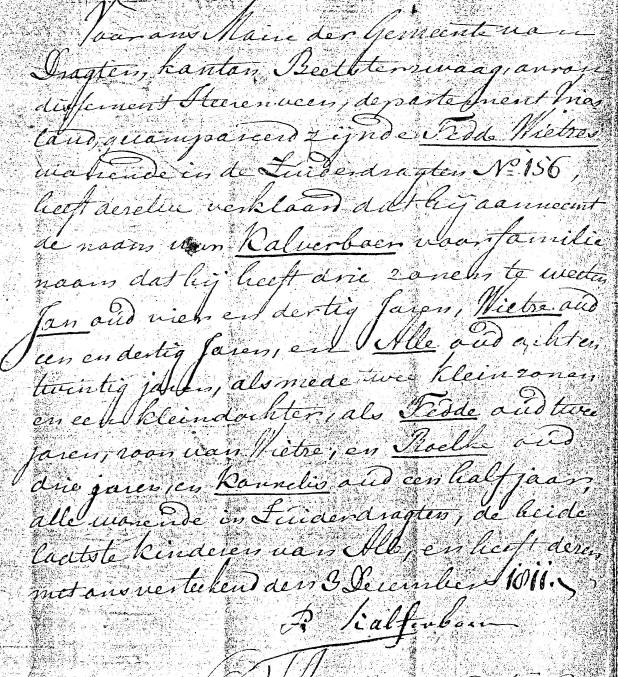 Voor ons Maire der Gemeente van
Dragten, kanton Beetsterzwaag, arron
dissement Heerenveen, departement Vries
land, gecompareerd zijnde Fedde Wietzes
wonende in de Zuiderdragten No. 156,
heeft dezelve verklaard dat hij aanneemt
de naam van Kalverboer voor familie
naam dat hij heeft drie zonen te weeten
Jan oud vier en dertig Jaren, Wietze oud
een en dertig Jaren, en Alle oud acht en
twintig jaren, als mede twee kleinzonen
en een kleindochter, als Fedde oud twee
jaren, zoon van Wietze, en Roelke oud
drie jaren, en Kornelis oud een half jaar,
alle wonende in Zuiderdragten, de beide
laatste kinderen van Alle, en heeft dezen
met ons vertekend den 3 December 1811.
Kalferboer